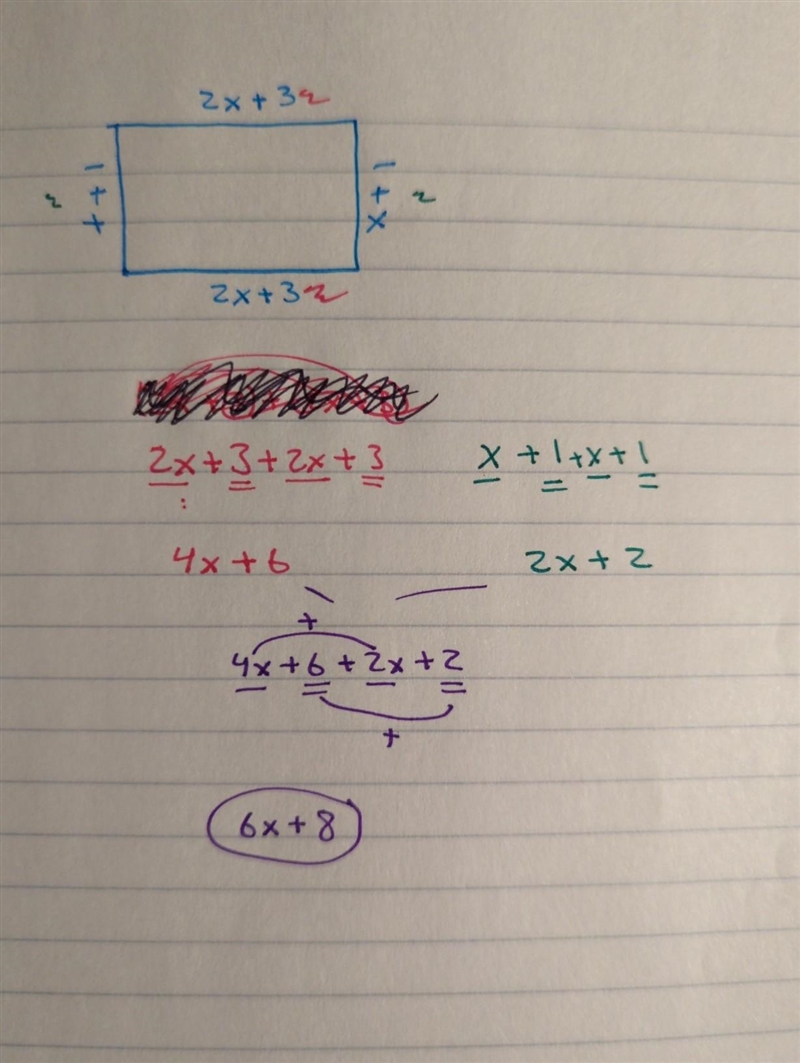 2x + 3
x + 1
x + 1
2x + 3
2x + 3 + 2x + 3
x + 1 + x + 1
4x + 6
2x + 2
+
4x + 6 + 2x + 2
+
6x + 8